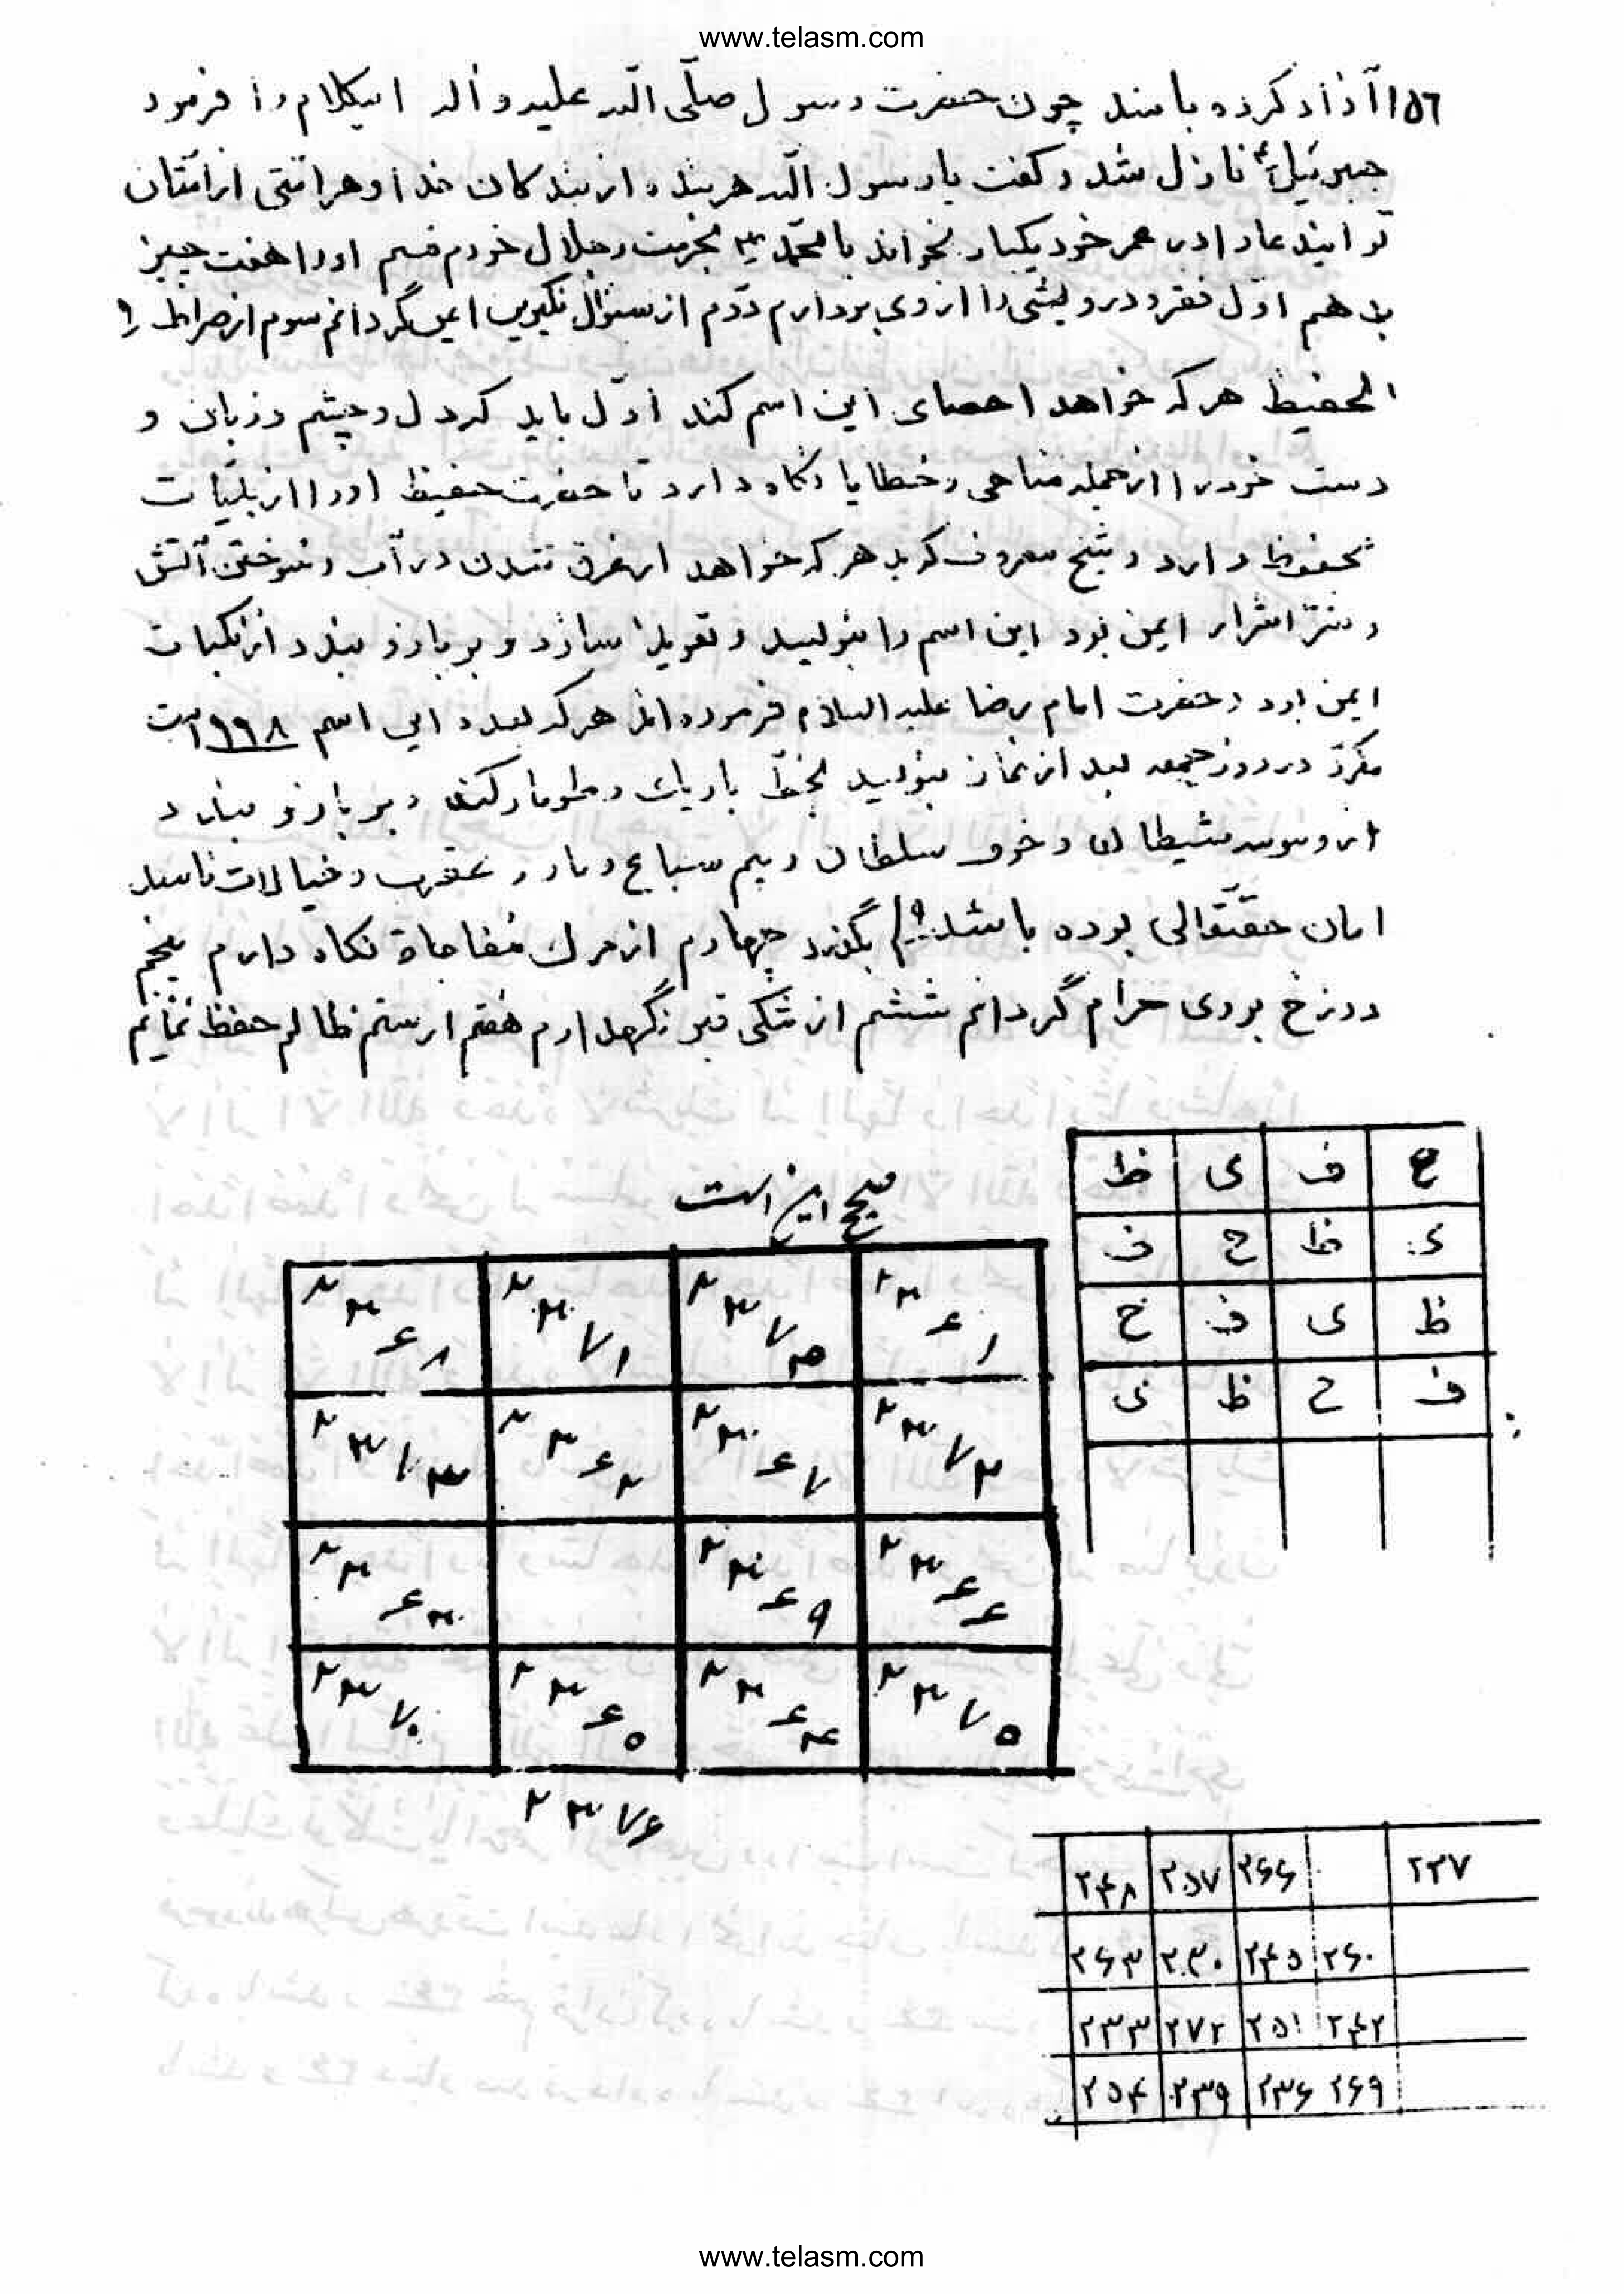 www.telasm.com
۱۵۶ آزاد کرده باشد چون حضرت رسول صلّی الله علیه و آله اینکلام را فرمود
جبرئیل نازل شد و گفت یا رسول الله هر بنده از بندکان خدا و هر امتی از امتان
تو ایندعا را در عمر خود یکبار بخواند یا محمّد بحرمت و جلال خودم قسم او را هفت چیز
بدهم اوّل فقر و درویشی را از وی بردارم دوّم از سئوال نکیرین ایمن گردانم سوم از صراط
الحفیظ هر که خواهد احصای این اسم کند اوّل باید که دل و چشم و زبان و
دست خود را از جمله مناهی و خطایا نگاه دارد تا حضرت حفیظ او را از بلیّات
محفوظ دارد و شیخ معروف کوید هر که خواهد از غرق شدن در آب و سوختن آتش
و شرّ اشرار ایمن بود این اسم را بنویسد و تعویذ سازد و بر بازو بندد از نکبات
ایمن بود و حضرت امام رضا علیه السلام فرموده اند هر که بعدد این اسم ۹۹۸ است
در روز جمعه بعد از نماز بنویسد بخطّ باریک و طومار کند و بر بازو بندد
از وسوسه شیطان و خوف سلطان و بیم سباع و مار و عقرب و خیالات فاسد
امان حقتعالی بوده باشد بگذرد چهارم از مرک مفاجاة نکاه دارم پنجم
دوزخ بروی حرام گردانم ششم از تنگی قبر نگهدارم هفتم از ستم ظالم حفظ نمایم
ح ف ی ظ
ی ظ ح ف
ظ ی ف ح
ف ح ظ ی
صحیح این است
۲۳۶۱ ۲۳۷۴ ۲۳۷۱ ۲۳۶۸
۲۳۷۲ ۲۳۶۷ ۲۳۶۲ ۲۳۷۳
۲۳۶۶ ۲۳۶۹ ۲۳۶۳
۲۳۷۵ ۲۳۶۴ ۲۳۶۵ ۲۳۷۰
۲۳۷۶
۲۴۸ ۲۵۷ ۲۶۶ ۲۲۷
۲۶۳ ۲۳۰ ۲۴۵ ۲۶۰
۲۳۳ ۲۷۲ ۲۵۱ ۲۴۲
۲۵۴ ۲۳۹ ۲۳۶ ۲۶۹
www.telasm.com